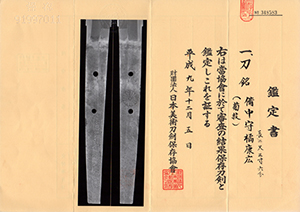 鑑定書
一、刀 銘 備中守橘康広
(菊紋)
長二尺三寸六分
右は當協會に於て審査の結果保存刀剣と
鑑定しこれを証する
平成九年十二月五日
財團法人日本美術刀剣保存協會